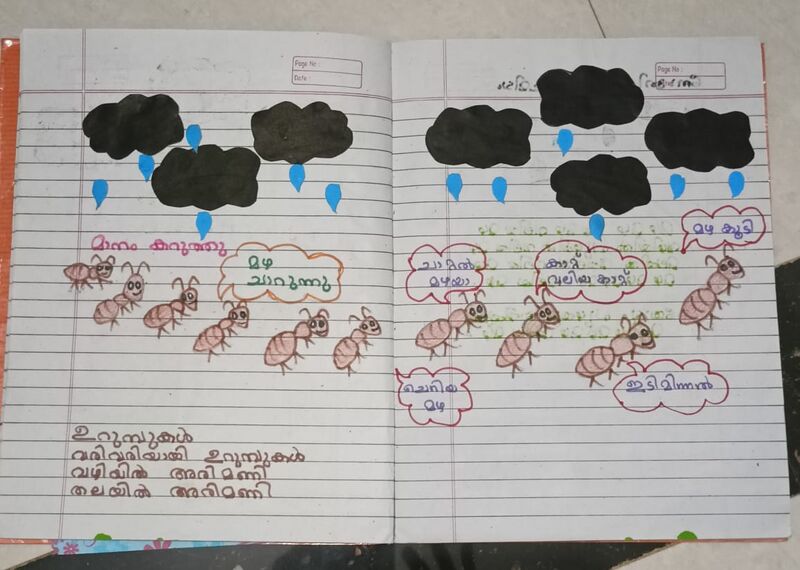 Page No :
Date :
മാനം കറുത്തു
മഴ
ചാറുന്നു
ഉറുമ്പുകൾ
വരിവരിയായി ഉറുമ്പുകൾ
വഴിയിൽ അരിമണി
തലയിൽ അരിമണി
Page No :
Date :
മഴ കൂടി
ചാറ്റൽ
മഴയാ
കാറ്റ്
വലിയ കാറ്റ്
ചെറിയ
മഴ
ഇടിമിന്നൽ